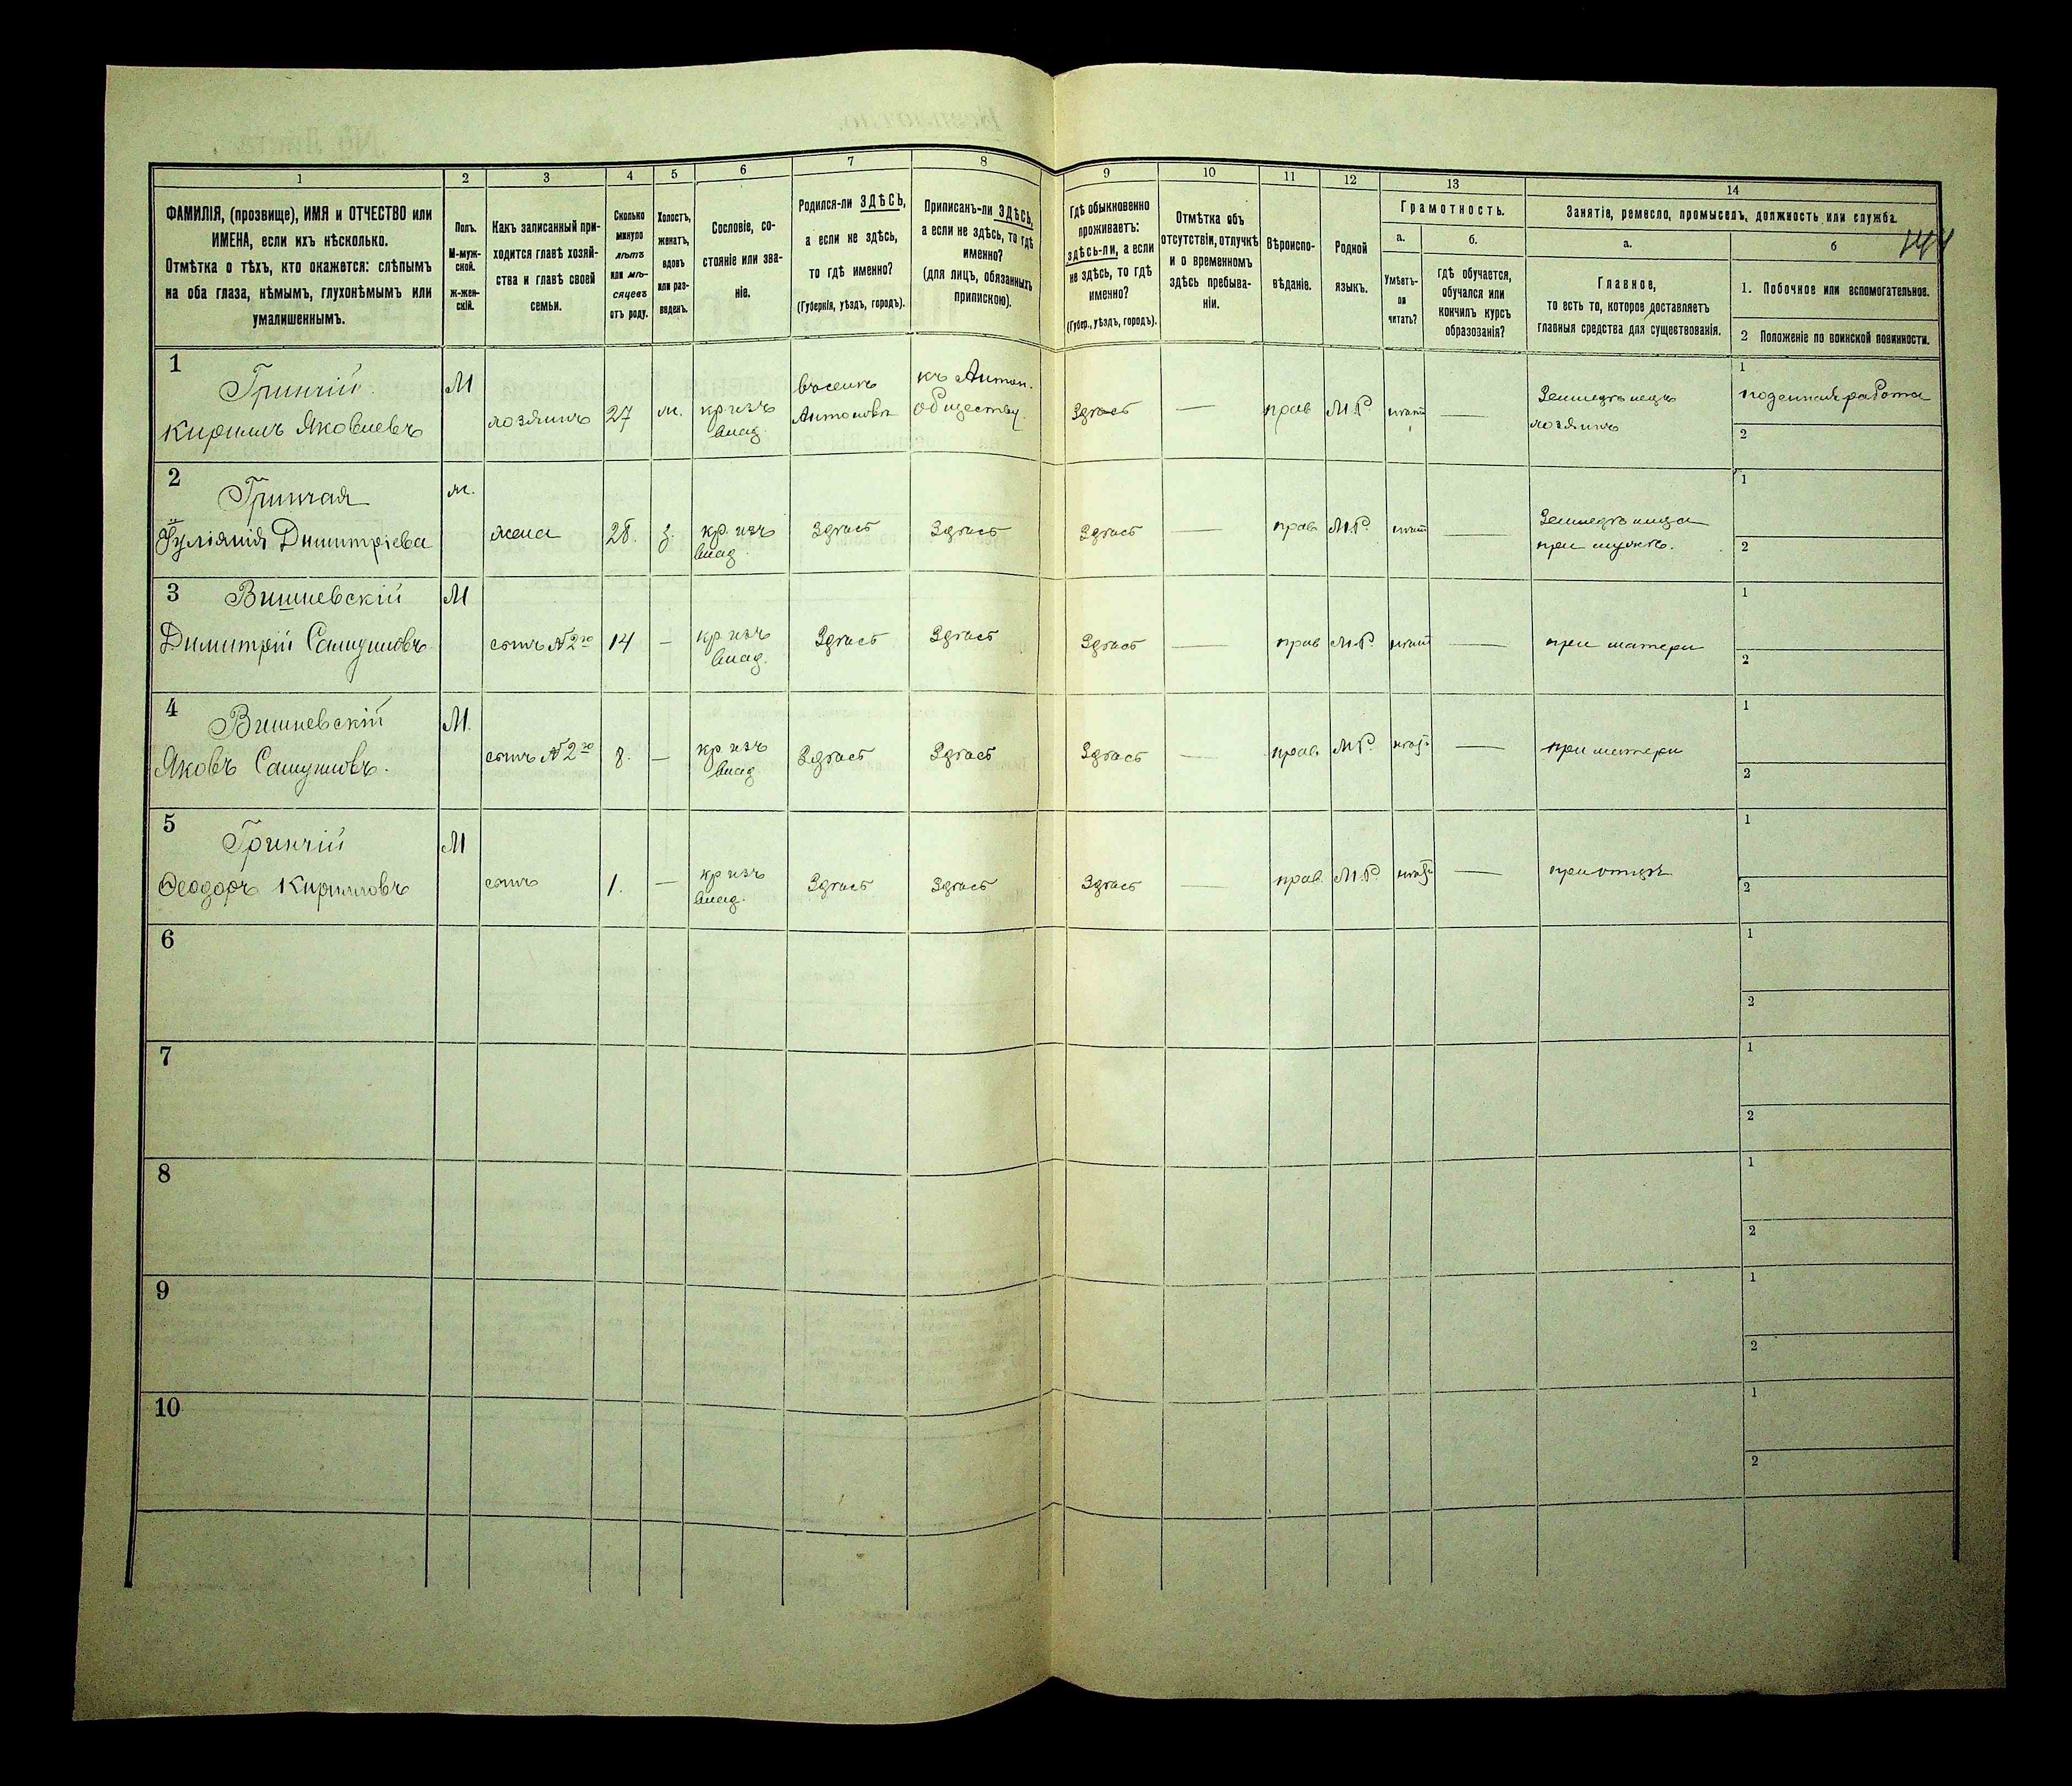 144
1
2
3
4
5
6
7
8
9
10
11
12
13
14
ФАМИЛІЯ, (прозвище), ИМЯ и ОТЧЕСТВО или
ИМЕНА, если ихъ нѣсколько.
Отмѣтка о тѣхъ, кто окажется: слѣпымъ
на оба глаза, нѣмымъ, глухонѣмымъ или
умалишеннымъ.
Полъ.
М-муж-
ской.
ж-жен-
скій.
Какъ записанный при-
ходится главѣ хозяй-
ства и главѣ своей
семьи.
Сколько
минуло
лѣтъ
или мѣ-
сяцевъ
отъ роду.
Холостъ,
женатъ,
вдовъ
или раз-
веденъ.
Сословіе, со-
стояніе или зва-
ніе.
Родился-ли ЗДѢСЬ,
а если не здѣсь,
то гдѣ именно?
(Губернія, уѣздъ, городъ).
Приписанъ-ли ЗДѢСЬ,
а если не здѣсь, то гдѣ
именно?
(для лицъ, обязанныхъ
припискою).
Гдѣ обыкновенно
проживаетъ:
здѣсь-ли, а если
не здѣсь, то гдѣ
именно?
(Губер., уѣздъ, городъ).
Отмѣтка объ
отсутствіи, отлучкѣ
и о временномъ
здѣсь пребыва-
ніи.
Вѣроиспо-
вѣданіе.
Родной
языкъ.
Грамотность.
а.
Умѣетъ-
ли
читать?
б.
гдѣ обучается,
обучался или
кончилъ курсъ
образованія?
Занятіе, ремесло, промыселъ, должность или служба.
а.
Главное,
то есть то, которое доставляетъ
главныя средства для существованія.
б
1. Побочное или вспомогательное.
2 Положеніе по воинской повинности.
1
Гринчій
Кириллъ Яковлевъ
М
хозяинъ
27
ж.
кр изъ
влад.
въ селѣ
Антоновкѣ
къ Антон.
обществу.
Здѣсь
—
прав
М.Р.
—
Земледѣлецъ
хозяинъ
1
поденная работа
2
2
Гринчая
Іуліянія Димитріева
ж.
жена
28.
з.
кр. изъ
влад
Здѣсь
Здѣсь
Здѣсь
—
прав.
М.Р.
—
Земледѣлица
при мужѣ.
1
2
3
Вишневскій
Димитрій Самуиловъ
М
сынъ №2го
14
—
кр изъ
влад.
Здѣсь
Здѣсь
Здѣсь
—
прав
М.Р.
—
при матери
1
2
4
Вишневскій
Яковъ Самуиловъ.
М.
сынъ №2го
8.
—
кр. изъ
влад.
Здѣсь
Здѣсь
Здѣсь
—
прав.
М.Р.
—
при матери
1
2
5
Гринчій
Ѳеодоръ Кирилловъ
М
сынъ
1.
—
кр изъ
влад.
Здѣсь
Здѣсь
Здѣсь
—
прав.
М.Р.
—
при отцѣ
1
2
6
1
2
7
1
2
8
1
2
9
1
2
10
1
2